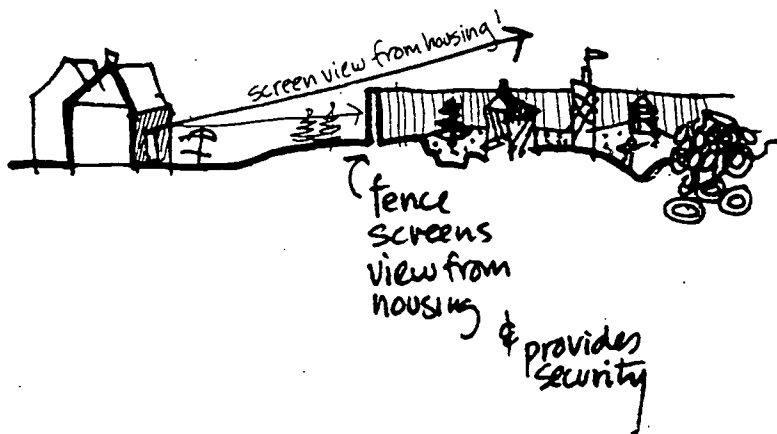 screen view from housing!
fence
screens
view from
housing
& provides
security